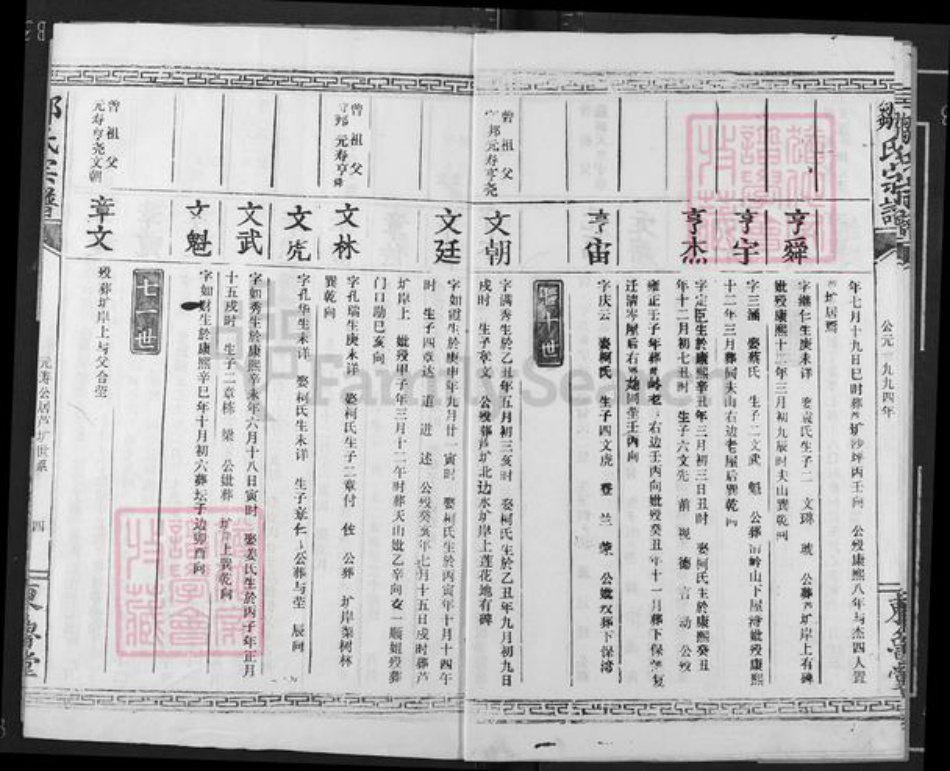 鄒氏宗譜
公元一九九四年
東魯堂
年七月十九日巳时葬芦圹沙坪丙壬向 公殁康熙八年与杰四人置
圹居廌
亨舜
字继仁生庚未详 娶袁氏生子二 文琳 琥 公葬芦圹岸上有碑
妣殁康熙十二年三月初九辰时夫山巽乾向
亨宇
字三涵 娶蔡氏 生子二文武 魁 公葬 岭山下屋湾妣殁康熙
十二年三月葬 夫山右边老屋后巽乾向
亨杰
字定臣生於康熙辛丑年三月初三日丑时 娶柯氏生於康熙癸丑
年十二月初七丑时 生子六文先 前 视 德 言 动 公殁
雍正壬子年葬 岭老 右边壬丙向妣殁癸丑年十一月葬下保 复
迁清岑屋后右 同茔壬丙向
亨宙
字庆云 娶柯氏 生子四文虎 登 兰 荣 公妣殁葬下保湾
十世
曾祖父
邦元寿亨尧
文朝
字满秀生於乙丑年五月初三亥时 娶柯氏生於乙丑年九月初九日
戌时 生子章文 公殁葬芦圹北边水圹岸上莲花地有碑
文廷
字如霞生於庚申年九月廿一寅时 娶柯氏生於丙寅年十月十四午
时 生子四章达 道 进 述 公殁癸亥年七月十五日戌时葬芦
圹岸上 妣殁甲子年三月十二午时葬天山妣乙辛向女一顺姐殁葬
门口勘巳亥向
曾祖父
邦元寿亨
文林
字孔瑞生庚未详 娶柯氏生子二章付 佐 公葬 圹岸菜树林
巽乾向
文虎
字孔华生未详 娶柯氏生未详 生子章仁 公葬与茔 辰向
文武
字如秀生於康熙辛未年六月十八日寅时 娶姜氏生於丙子年正月
十五戌时 生子二章栋 梁 公妣葬 圹岸上巽乾向
文魁
字如财生於康熙辛巳年十月初六葬坛于边卯酉向
十一世
曾祖父
元寿亨尧文朝
章文
殁葬圹岸上与父合茔
氏宗譜
元寿公居芦圹世系
四
東魯堂
FamilySearch